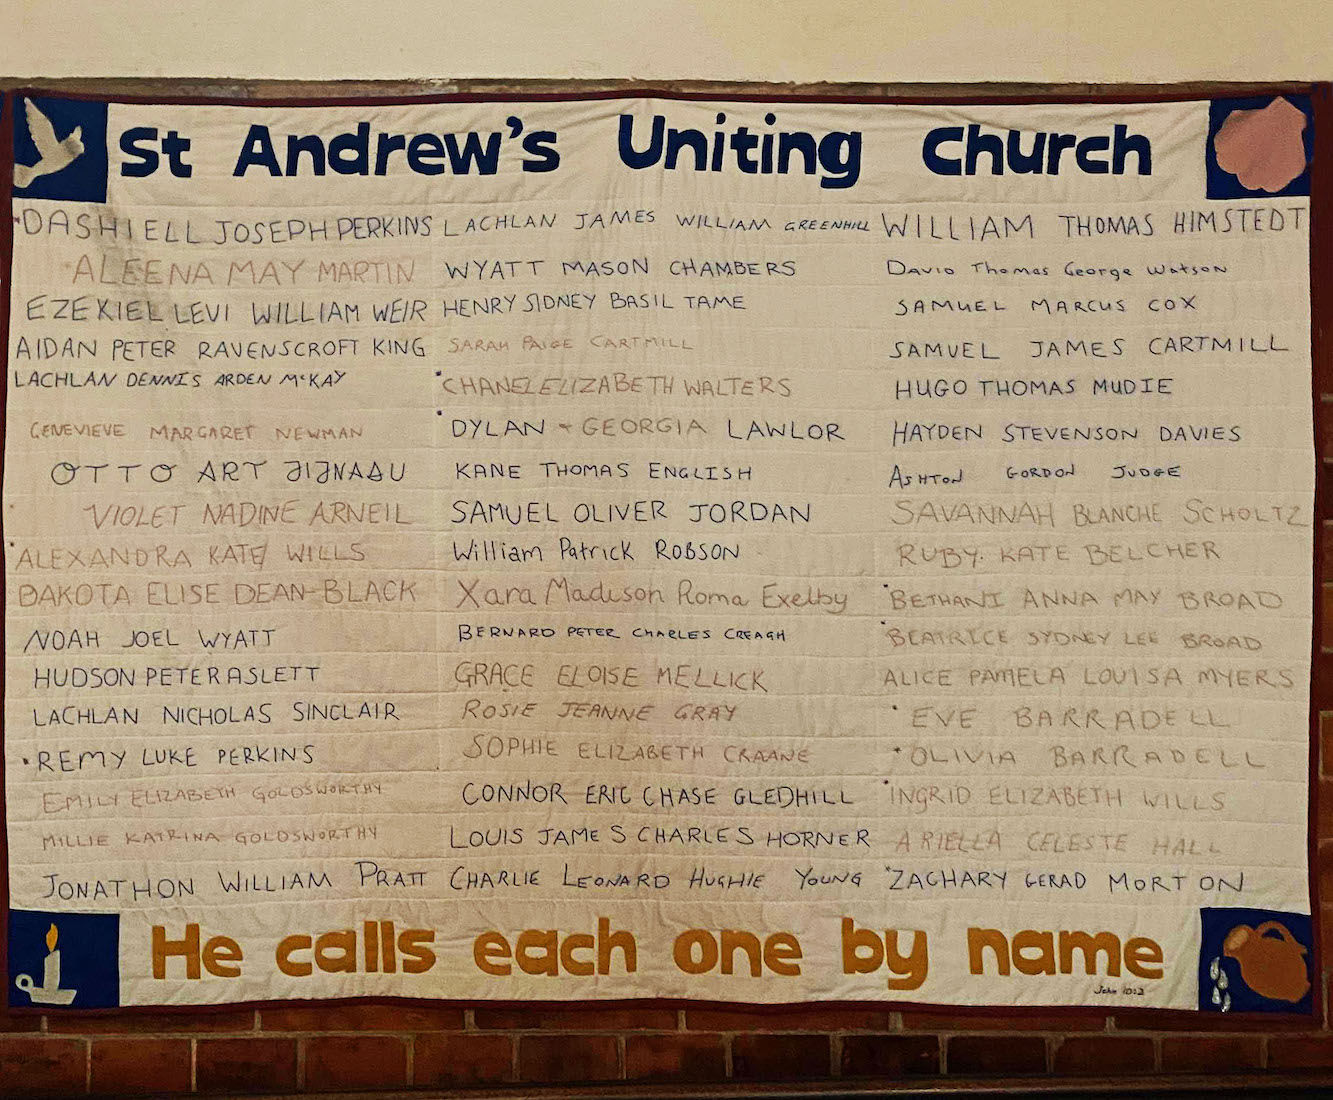 St Andrew's Uniting Church
DASHIELL JOSEPH PERKINS
ALEENA MAY MARTIN
EZEKIEL LEVI WILLIAM WEIR
AIDAN PETER RAVENSCROFT KING
LACHLAN DENNIS ARDEN McKAY
GENEVIEVE MARGARET NEWMAN
OTTO ART JIJNASU
VIOLET NADINE ARNEIL
ALEXANDRA KATE WILLS
DAKOTA ELISE DEAN-BLACK
NOAH JOEL WYATT
HUDSON PETER ASLETT
LACHLAN NICHOLAS SINCLAIR
REMY LUKE PERKINS
EMILY ELIZABETH GOLDSWORTHY
MILLIE KATRINA GOLDSWORTHY
JONATHON WILLIAM PRATT
LACHLAN JAMES WILLIAM GREENHILL
WYATT MASON CHAMBERS
HENRY SIDNEY BASIL TAME
SARAH PAIGE CARTMILL
CHANEL ELIZABETH WALTERS
DYLAN + GEORGIA LAWLOR
KANE THOMAS ENGLISH
SAMUEL OLIVER JORDAN
William Patrick ROBSON
Xara Madison Roma Exelby
BERNARD PETER CHARLES CREAGH
GRACE ELOISE MELLICK
ROSIE JEANNE GRAY
SOPHIE ELIZABETH CRAANE
CONNOR ERIC CHASE GLEDHILL
LOUIS JAMES CHARLES HORNER
CHARLIE LEONARD HUGHIE YOUNG
WILLIAM THOMAS HIMSTEDT
David Thomas George Watson
SAMUEL MARCUS COX
SAMUEL JAMES CARTMILL
HUGO THOMAS MUDIE
HAYDEN STEVENSON DAVIES
ASHTON GORDON JUDGE
SAVANNAH BLANCHE SCHOLTZ
RUBY KATE BELCHER
BETHANI ANNA MAY BROAD
BEATRICE SYDNEY LEE BROAD
ALICE PAMELA LOUISA MYERS
EVE BARRADELL
OLIVIA BARRADELL
INGRID ELIZABETH WILLS
ARIELLA CELESTE HALL
ZACHARY GERAD MORTON
He calls each one by name
John 10:3